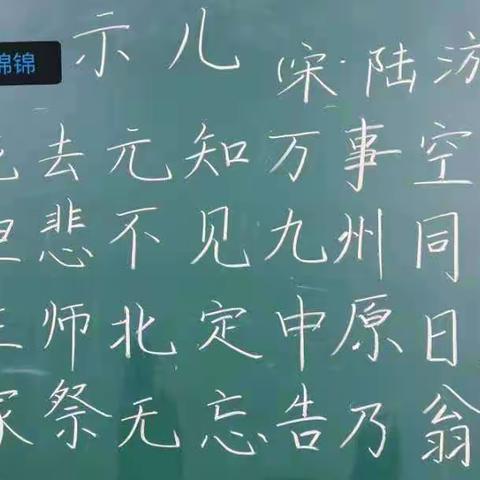 锦锦
示儿
宋·陆游
死去元知万事空
但悲不见九州同
王师北定中原日
家祭无忘告乃翁